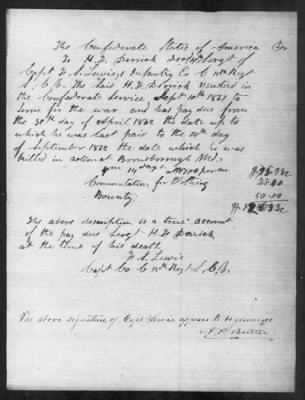 The Confederate States of America Dr
To H. F. Derrick Decd Sergt of
Capt F. S. Lewie's Infantry Co C 15th Regt
S. C. V. The said H. F. Derrick enlisted in
the Confederate Service Sept 10th 1861 to
serve for the war and has pay due from
the 30th day of April 1862 the date up to
which he was last paid to the 14th day
of September 1862 the date which he was
killed in action at Boonsborough Md.
4 m 14 days
Commutation for Clothing 25.00
Bounty 50.00
The above description is a true account
of the pay due Sergt H. F. Derrick
at the time of his death
F. S. Lewie
Capt Co C 15th Regt S. C. V.
The above signature of Capt Lewie appears to be genuine